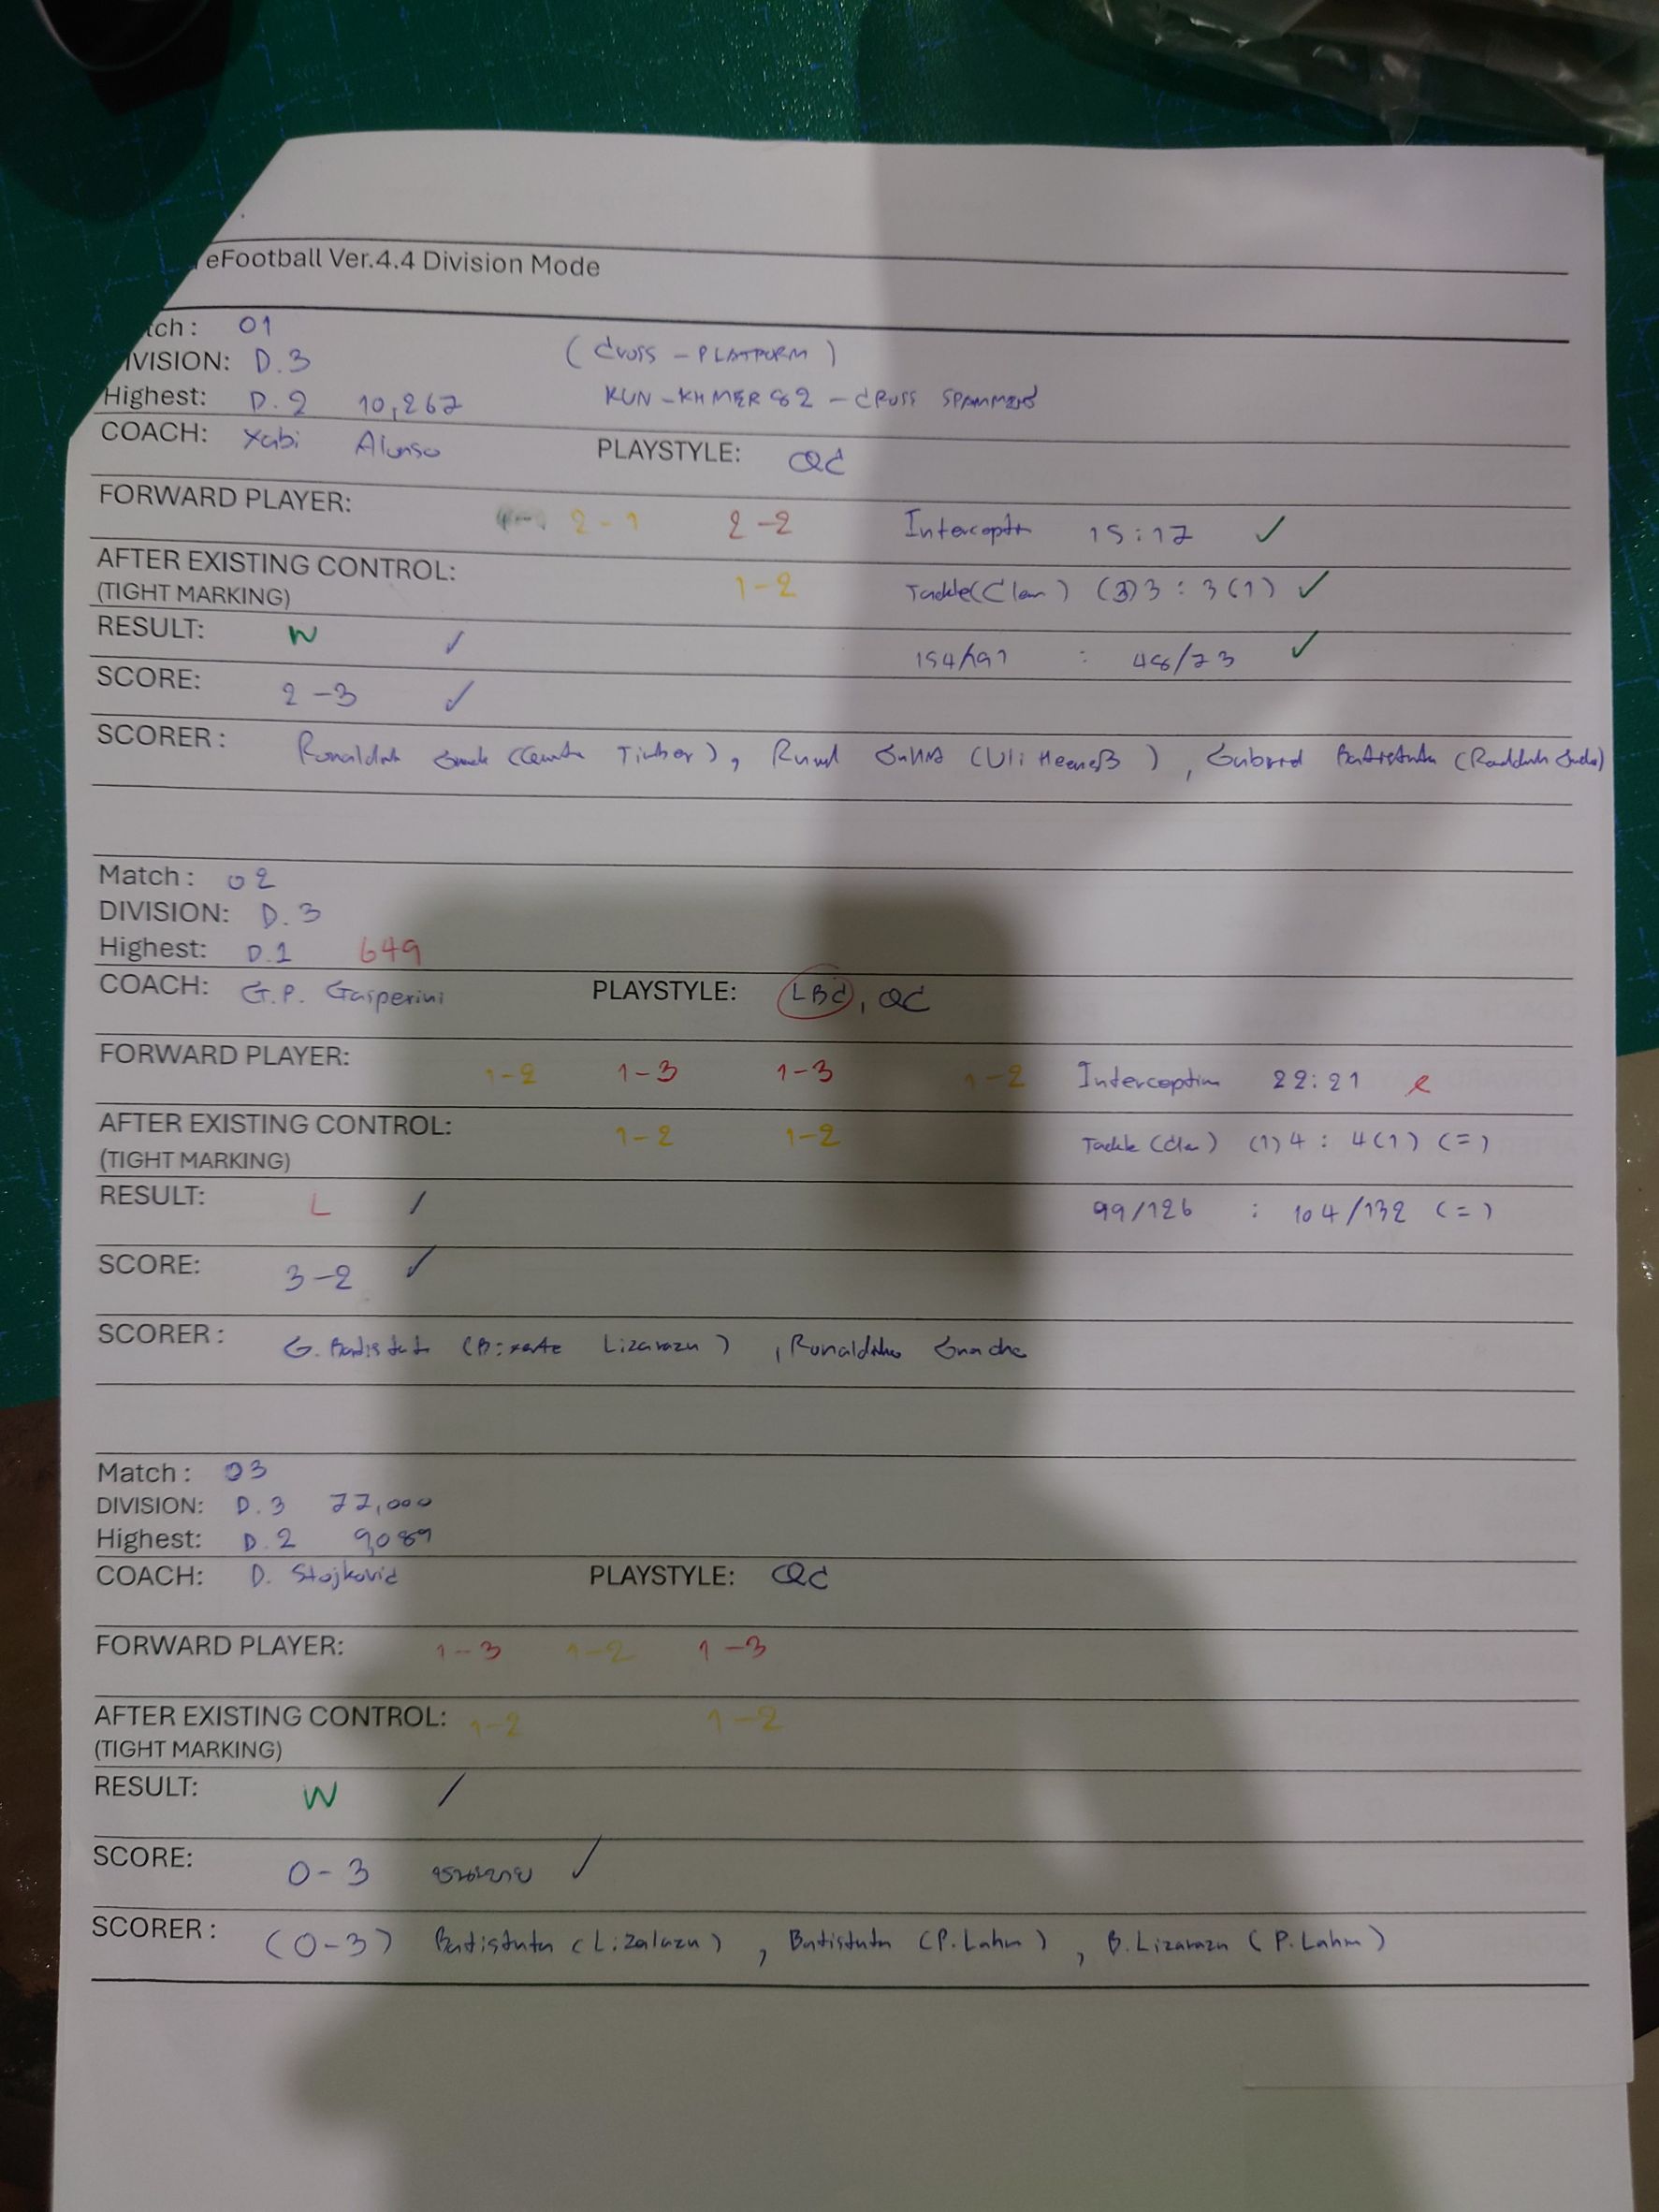 eFootball Ver.4.4 Division Mode
tch : 01
IVISION: D.3 (CROSS - PLATFORM)
Highest: D.2 10,267 KUN-KHMER82 - CROSS SPAMMERS
COACH: Xabi Alonso PLAYSTYLE: QC
FORWARD PLAYER: 2-1 2-2 15:17 ✓
AFTER EXISTING CONTROL: 1-2 Tackle (3)3 : 3(1) ✓
(TIGHT MARKING)
RESULT: W ✓ : 48/73 ✓
SCORE: 2-3 ✓
SCORER : (Uli Hoeneß),
Match : 02
DIVISION: D.3
Highest: D.1 649
COACH: G.P. Gasperini PLAYSTYLE: LBC, QC
FORWARD PLAYER: 1-2 1-3 1-3 1-2 Interception 22:21
AFTER EXISTING CONTROL: 1-2 1-2 (1)4 : 4(1) (=)
(TIGHT MARKING)
RESULT: L / 99/126 : 104/132 (=)
SCORE: 3-2 ✓
SCORER : (Bixente Lizarazu),
Match : 03
DIVISION: D.3 77,000
Highest: D.2 9,089
COACH: D. Stojković PLAYSTYLE: QC
FORWARD PLAYER: 1-3 1-2 1-3
AFTER EXISTING CONTROL: 1-2 1-2
(TIGHT MARKING)
RESULT: W /
SCORE: 0-3 ✓
SCORER : (0-3) Batistuta (Lizalazu), Batistuta (P.Lahm), B.Lizarazu (P.Lahm)